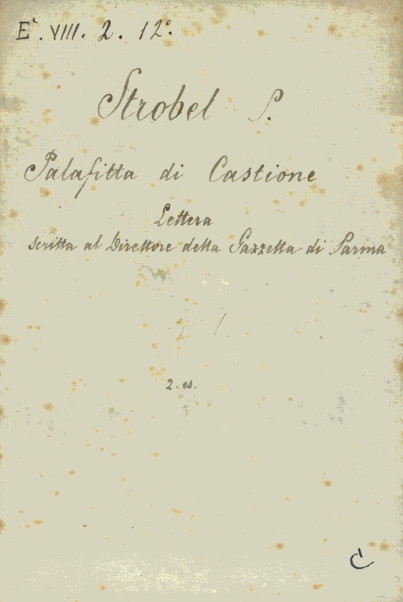 E`. VIII. 2. 12º.
Strobel P.
Palafitta di Castione
Lettera
scritta al Direttore della Gazzetta di Parma
2. es.
C